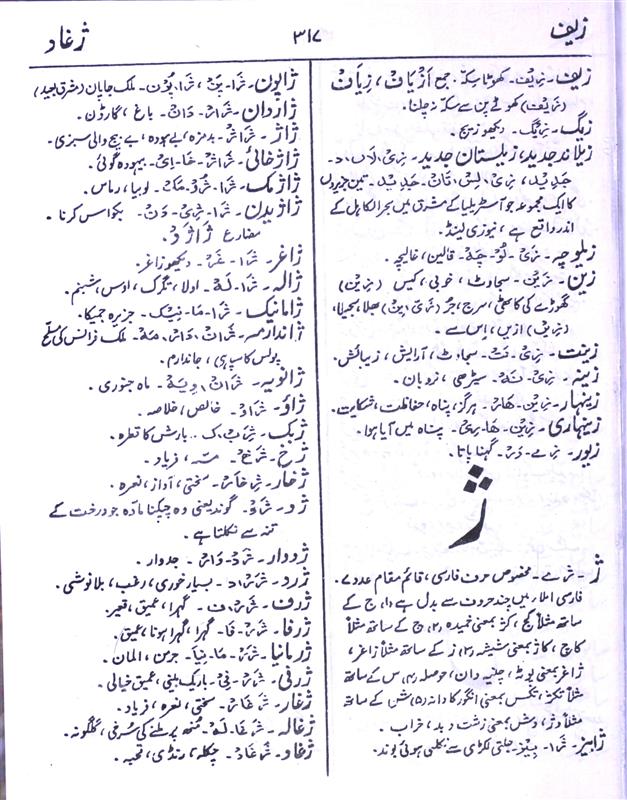 زیف
۳۱۷
ژغاد
زیف۔ زِیْف۔ کھوٹا سکہ۔ جمع اَزْیَاف، زِیَاف
(زَیْف) کھوٹے پن سے سکہ نہ چلنا۔
زیگ۔ زِیْگ۔ دیکھو زیج۔
زیلاند جدید، زیلستان جدید۔ زِیْ۔ لَانْ۔ دِ۔
جَدِیْد، زِیْ۔ لِسْ۔ تَانْ۔ جَدِیْد۔ تین جزیروں
کا ایک مجموعہ جو آسٹریلیا کے مشرق میں بحر الکاہل کے
اندر واقع ہے، نیوزی لینڈ۔
زیلوچہ۔ زِیْ۔ لُوْ۔ چَہْ۔ قالین، غالیچہ۔
زین۔ زَیْن۔ سجاوٹ، خوبی، کیس (زِیْن)
گھوڑے کی کاٹھی، سرج، جُز (زَیِّن) بھلا، سجیلا،
(زِیْن) ازیں، اس سے۔
زینت۔ زِیْ۔ نَتْ۔ سجاوٹ، آرایش، زیبائش۔
زینہ۔ زِیْ۔ نَہْ۔ سیڑھی، نردبان۔
زینہار۔ زِیْن۔ ھَارْ۔ ہرگز، پناہ، حفاظت، شکایت۔
زینہاری۔ زِیْن۔ ھَا۔ رِیْ۔ پناہ میں آیا ہوا۔
زیور۔ زے۔ وَرْ۔ گہنا پاتا۔
ژ
ژ۔ ژے۔ مخصوص حرف فارسی، قائم مقام عدد ۷۔
فارسی املا میں چند حروف سے بدل ہے (۱) ج کے
ساتھ مثلاً کج، کژ بمعنی خمیدہ (۲) چ کے ساتھ مثلاً
کاچ، کاژ بمعنی شیشہ (۳) ز کے ساتھ مثلاً زاغر،
ژاغر بمعنی پوٹہ، چینہ دان، حوصلہ (۴) س کے ساتھ
مثلاً تکژ، تکس بمعنی انگور کا دانہ (۵) ش کے ساتھ
مثلاً دژ، وش بمعنی زشت و بد، خراب۔
ژابیز۔ ژَا۔ بِیْز۔ جلتی لکڑی سے نکلی ہوئی بوند۔
ژاپون۔ ژَا۔ پَنْ، ژَا۔ پُوْن۔ ملک جاپان (مشرق بعید)
ژاردان۔ ژَارْ۔ دَانْ۔ باغ، گارڈن۔
ژاژ۔ ژَاژْ۔ بدمزہ، بے ہودہ، بے بیج والی سبزی۔
ژاژخائی۔ ژَاژْ۔ خَا۔ اِیْ۔ بیہودہ گوئی۔
ژاژمک۔ ژَا۔ ژُوْ۔ مَکْ۔ لوبیا، رماس۔
ژاژیدن۔ ژَا۔ ژِیْ۔ دَنْ۔ بکواس کرنا۔
مضارع ژَاژَدْ۔
ژاغر۔ ژَا۔ غَرْ۔ دیکھو زاغر۔
ژالہ۔ ژَا۔ لَہْ۔ اولا، تگرگ، اوس، شبنم۔
ژامائیک۔ ژَا۔ مَا۔ ئِیْک۔ جزیرہ جمیکا۔
ژاندارمہ۔ ژَانْ۔ دَارْ۔ مَہْ۔ ملک فرانس کی مسلح
پولس کا سپاہی، جاندارم۔
ژانویہ۔ ژَانْ۔ وِیَہْ۔ ماہ جنوری۔
ژاؤ۔ ژَاوْ۔ خالص، خلاصہ۔
ژبک۔ ژَبَ۔ ک۔ بارش کا قطرہ۔
ژخ۔ ژَخْ۔ مسہ، فریاد۔
ژخار۔ ژَ خَارْ۔ سختی، آواز، نعرہ۔
ژد۔ ژَدْ۔ گوند یعنی وہ چپکنا مادہ جو درخت کے
تنہ سے نکلتا ہے۔
ژدوار۔ ژَدْ۔ وَارْ۔ جدوار۔
ژرد۔ ژَرْد۔ بسیار خوری، رغب، بلانوشی۔
ژرف۔ ژَرْف۔ گہرا، عمیق، قعیر۔
ژرفا۔ ژَرْ۔ فَا۔ گہرا، گہرا ہونا، عمیق۔
ژرمانیا۔ ژَرْ۔ مَا۔ نِیَا۔ جرمن، المان۔
ژرفی۔ ژَرْ۔ فِیْ۔ باریک بینی، عمیق خیالی۔
ژغار۔ ژَ غَارْ۔ سختی، نعرہ، فریاد۔
ژغالہ۔ ژَ غَا۔ لَہْ۔ منہ پر ملنے کی سُرخی، گلگونہ۔
ژغاو۔ ژَ غَاوْ۔ چکلہ، رنڈی، قحبہ۔